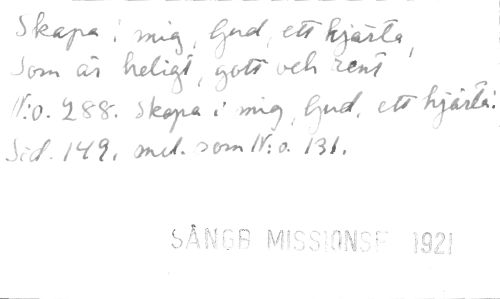 Skapa i mig, Gud, ett hjärta,
Som är heligt, gott och rent
N:o. 288. Skapa i mig, Gud, ett hjärta:
Sid. 149. mel. som N:o. 131.
SÅNGB MISSIONSF 1921